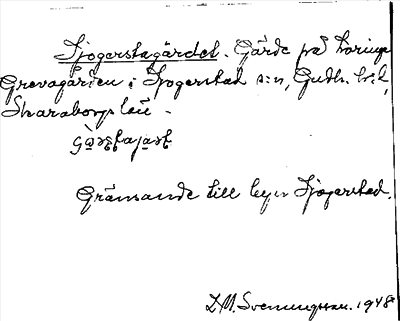 Sjogerstagärdet. Gärde på
Grevagården i Sjogerstad s:n, Gudh. h:d,
Skaraborgs län.
Gränsande till byn Sjogerstad.
D.M. Svenungsson. 1948